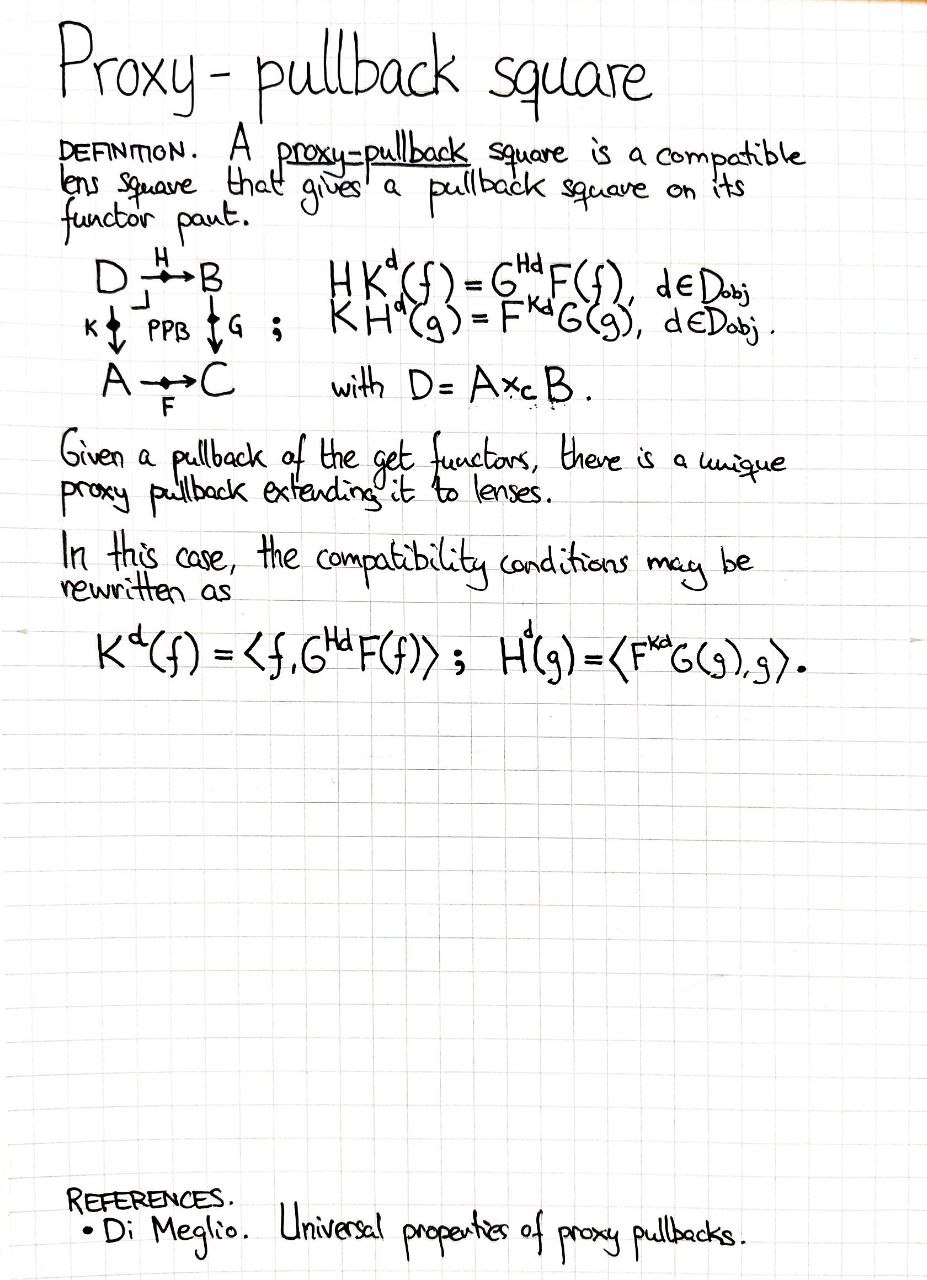 Proxy-pullback square
DEFINITION. A proxy-pullback square is a compatible
lens square that gives a pullback square on its
functor part.
D H B
K PPB G ;
A F C
H K^d(f) = G^{Hd} F(f), d∈D_obj
K H^d(g) = F^{Kd} G(g), d∈D_obj.
with D = A×_C B.
Given a pullback of the get functors, there is a unique
proxy pullback extending it to lenses.
In this case, the compatibility conditions may be
rewritten as
K^d(f) = ⟨f, G^{Hd} F(f)⟩ ; H^d(g) = ⟨F^{Kd} G(g), g⟩.
REFERENCES.
• Di Meglio. Universal properties of proxy pullbacks.